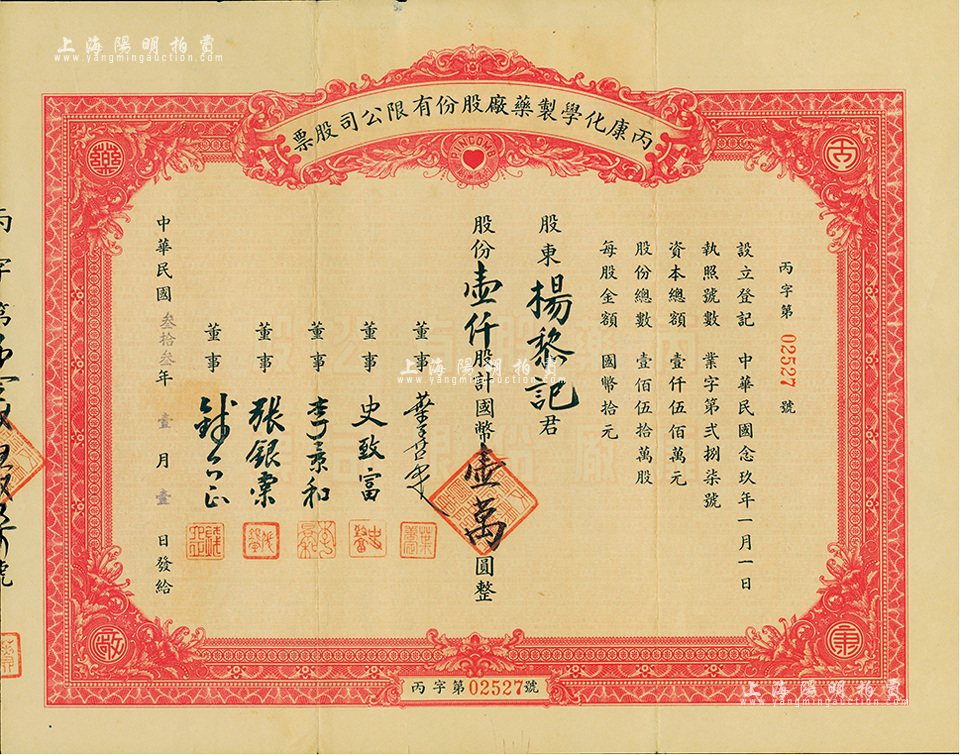 上海陽明拍賣
www.yangmingauction.com
丙康化學製藥廠股份有限公司股票
PINCOMB
藥
古
丙字第 02527 號
設立登記 中華民國念玖年一月一日
執照號數 業字第弍捌柒號
資本總額 壹仟伍佰萬元
股份總數 壹佰伍拾萬股
每股金額 國幣拾元
股東 楊黎記 君
股份 壹仟 股計國幣 壹萬 圓整
董事
董事 史致富
董事 李景和
董事 張銀粟
董事
中華民國叁拾叁年 壹 月 壹 日發給
上海陽明拍賣
www.yangmingauction.com
丙字第
號
廠
康
丙字第02527號
上海陽明拍賣
www.yangmingauction.com